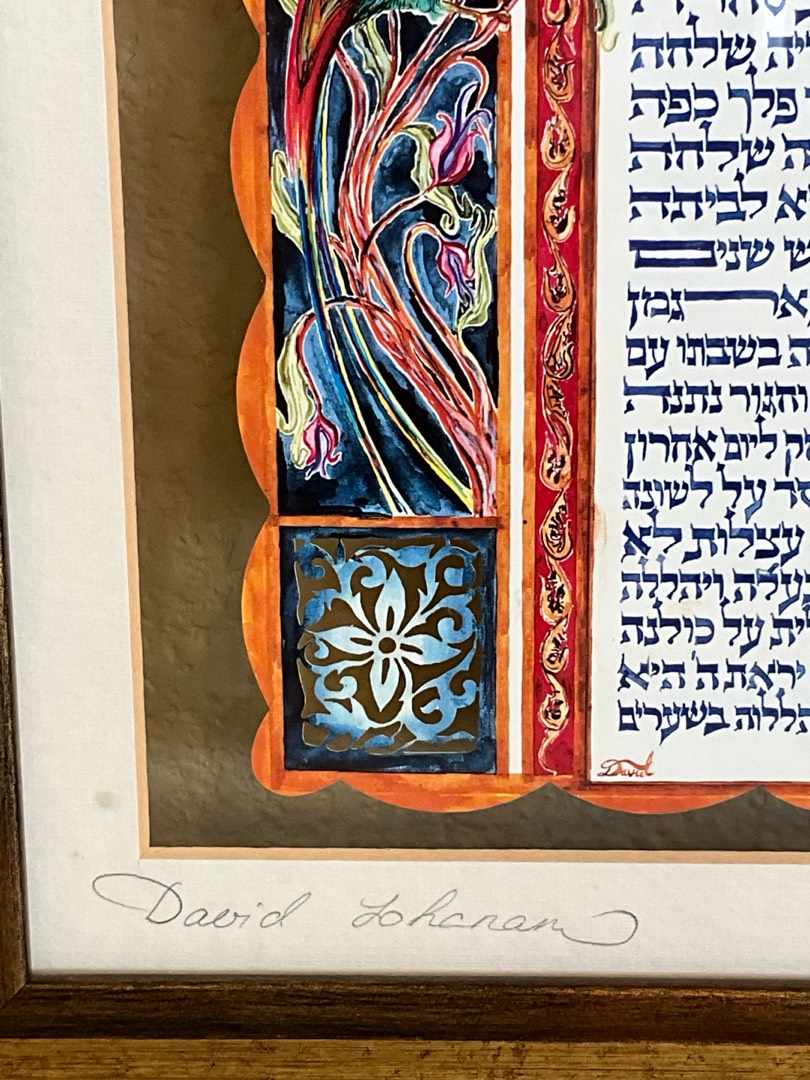 שלחה
פלך כפה
שלחה
לביתה
שנים
ארגמן
בשבתו עם
וחגור נתנה
ליום אחרון
על לשונה
עצלות לא
בעלה ויהללה
על כולנה
יראת ה' היא
בשערים
David
David Yohanan